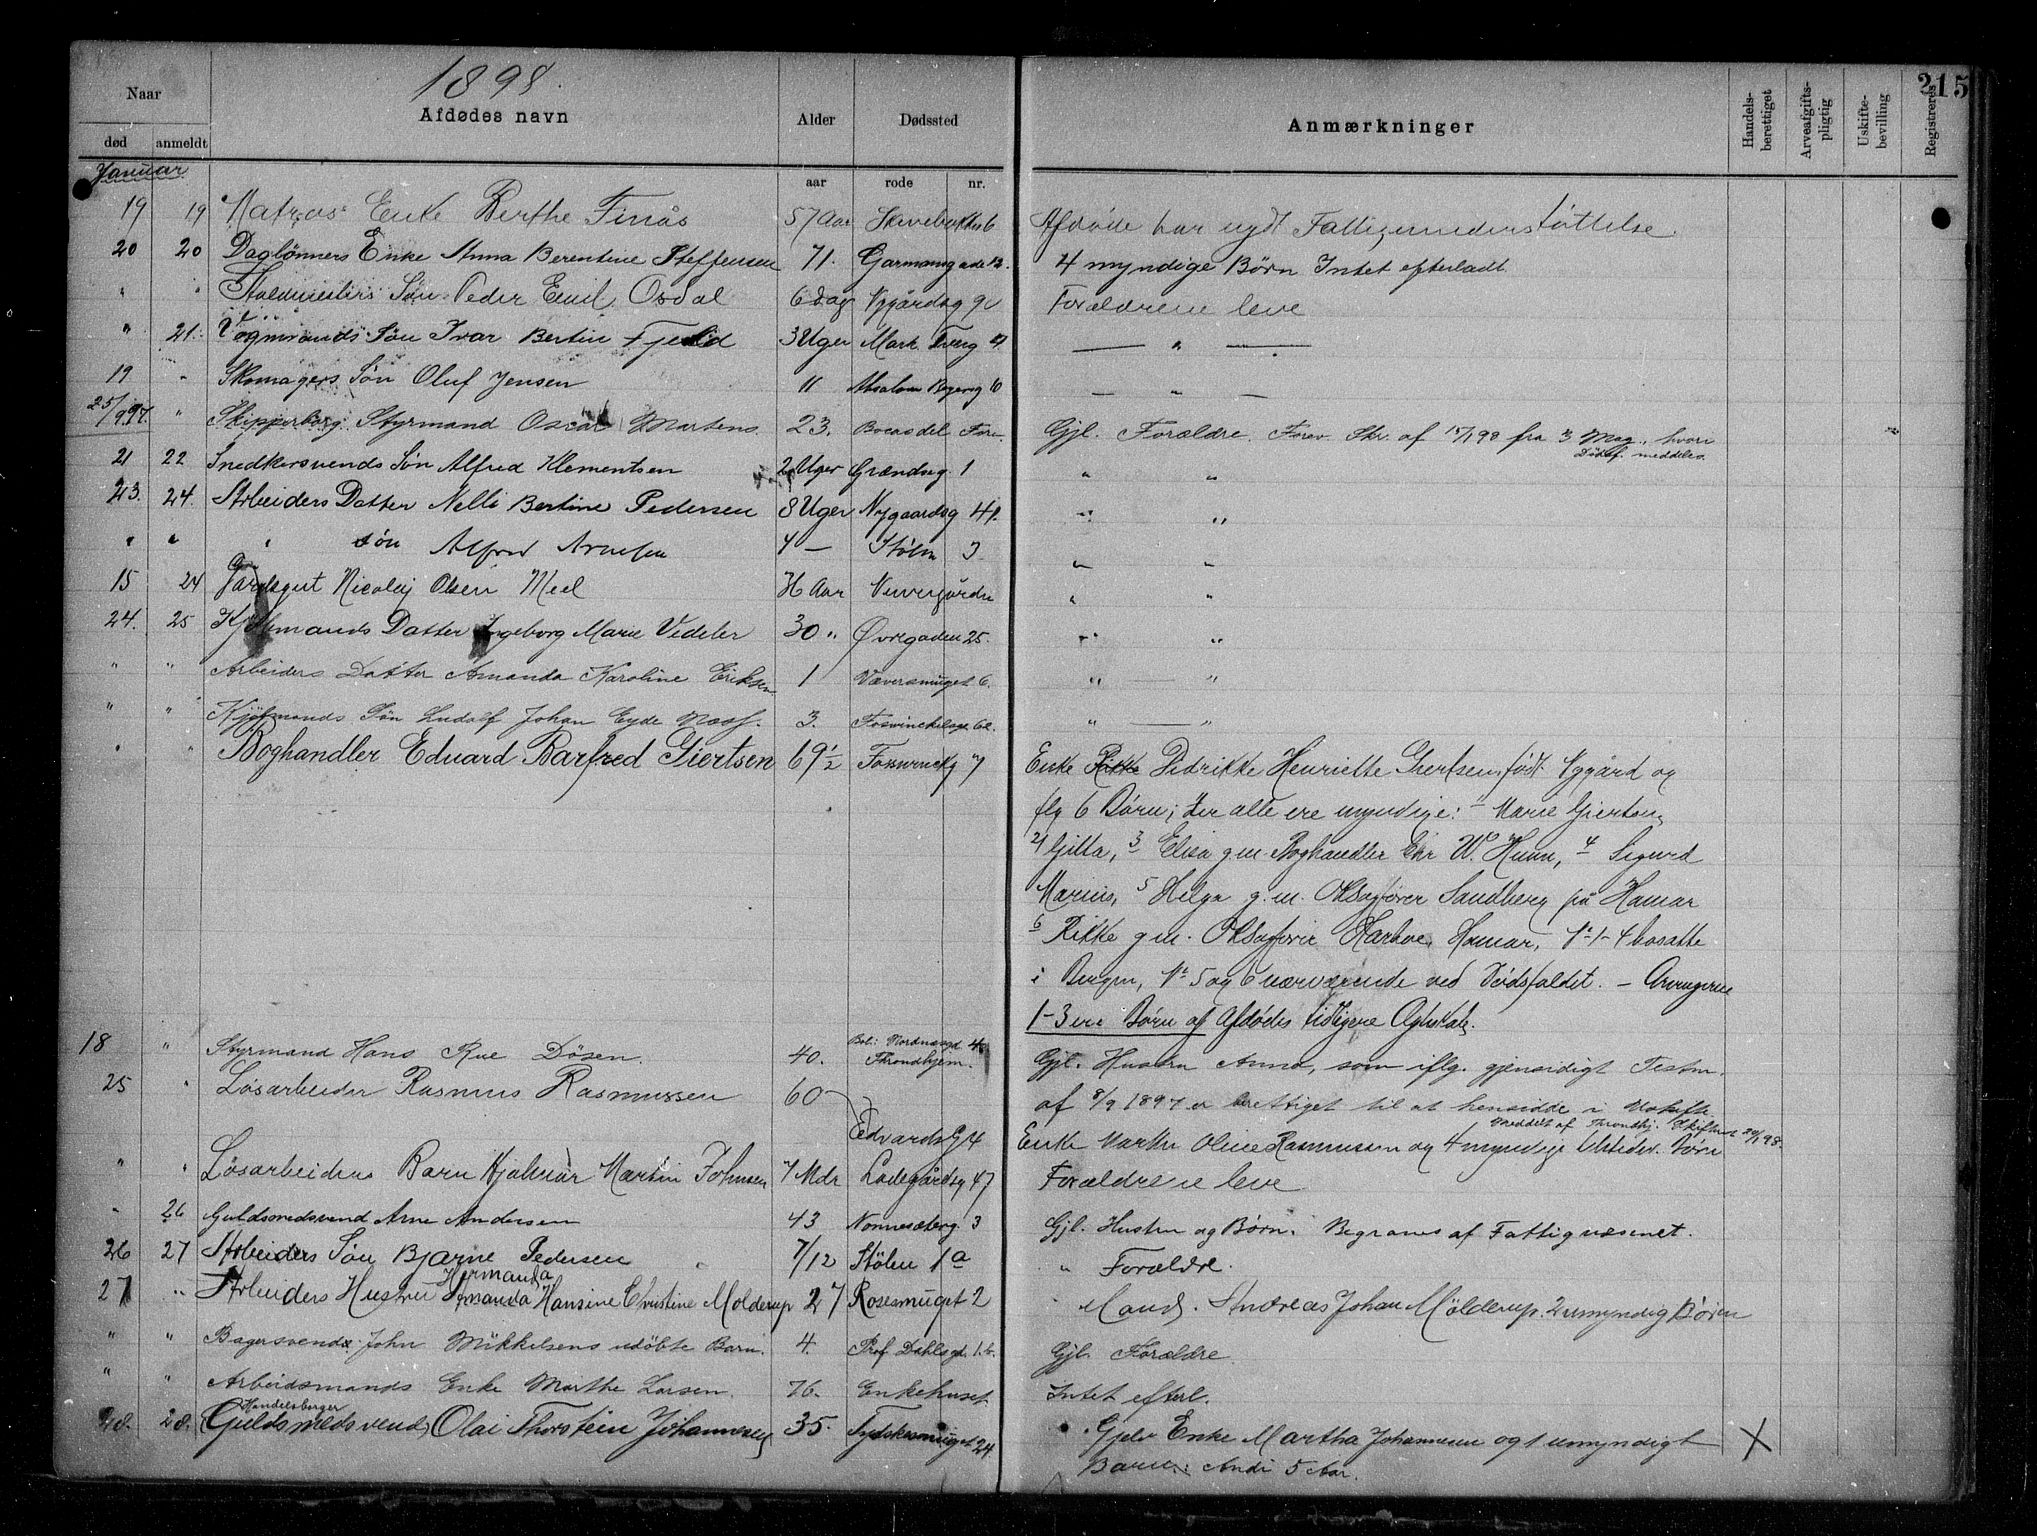 215
1898.
Naar
Afdødes navn
Alder
Dødssted
Anmærkninger
Handels-berettiget
Arveafgifts-pligtig
Uskifte-bevilling
Registreres
død anmeldt
Januar
aar rode nr.
19 19 Matros Enke Berthe Finås 57 Aar 6 Afdøde har nydt Fattigunderstøttelse.
20 20 Daglønners Enke Anna Berentine Steffensen 71. Garmannsgade 12. 4 myndige Børn Intet efterladt
" " Søn Peder Emil Osdal 6 dag Nygårdsg 90 Forældrene leve
" 21. Vognmands Søn Ivar Bertin Fjeld 3 Uger Mark — " —
19 " Skomagers Søn Oluf Jensen 11 Absalon Beyersg 10 — " —
25/9.97. " Skipperborg. Styrmand Oscar Martens 23. Bocas del Toro Gjl. Forældre. Forev. Skr. af 15/1 98 fra 3 Mag. hvori
Dødsf. meddeles
21 22 Snedkersvends Søn Alfred Klementsen 2 Uger Grændseg 1 " "
23. 24. Arbeiders Datter Nelli Bertine Pedersen 8 Uger Nygaardsg 41. " "
" " " søn Alfred Arnesen 4 — Stølen 3 " "
15 24 Gårdsgut Nicolay Olsen Meel Aar " "
24. 25 Kjøbmands Datter Ingeborg Marie Vedeler 30 " Øvregaden 25. " "
" " Arbeiders Datter Amanda Karoline Eriksen 1 Væversmuget 6. " — "
" " Kjøbmands Søn Ludolf Johan Eyde 3. Foswinckelsgd 62. " — "
" " Boghandler Eduard Barfred Giertsen 69½ Foswinckg 7 Enke Rikke Didrikke Henriette Giertsen, født Nygård og
flg 6 Børn, der alle ere myndige: 1 Marie Giertsen,
2) Gitta, 3 Elisa g.m. Boghandler Chr W. Huun, 4 Sigurd
Marius, 5 Helga g.m. ORSagfører Sandberg på Hamar
6 Rikke g m. ORSagfører Hamar, No 1-4 bosatte
i Bergen, No 5 og 6 nærværende ved Dødsfaldet. – Arvingerne
1-3 ere Børn af Afdødes tidligere Ægteskab.
18 " Styrmand Hans Rue Døsen. 40. Bol: Nordnæsgd 45 Throndhjem. Gjl. Hustru Anna, som iflg. gjensidigt Testm.
25 " Løsarbeider Rasmus Rasmussen 60 Edvards G 4 af 8/9 1897 er berettiget til at hensidde i Uskifte.
Meddelt af Throndhj. Skifteret 29/1 98.
Enke Marthe Oline Rasmussen og 4 myndige Børn
" " Løsarbeiders Barn Hjalmar Martin Johnsen 7 Mdr Ladegårdsg 47 Forældrene leve
" 26 Guldsmedsvend Arne Andersen 43 Nonnesæterg. 3 Gjl. Hustru og Børn. Begraves af Fattigvæsenet.
26 27 Arbeiders Søn Bjarne Pedersen 7/12 Stølen 1a " Forældre.
Hermanda
27 " Arbeiders Hustru Amanda Hansine Christine Mölderup 27 Rosesmuget 2 " Mand. Andreas Johan Mölderup. 2 umyndig Børn
" " Bagersvend John Mikkelsens udøbte Barn. 4. Prof Dahlsgd. 16. Gjl. Forældre.
" " Arbeidsmands Enke Marthe Larsen. 76. Enkehuset Intet efterl.
Handelsborger
28. 28. (Guldsmedsvend) Olai Thorstein Johannesen 35. Tydskesmuget 24. Gjelv Enke Martha Johannesen og 1 umyndigt X
Barn: Andi 5 Aar.